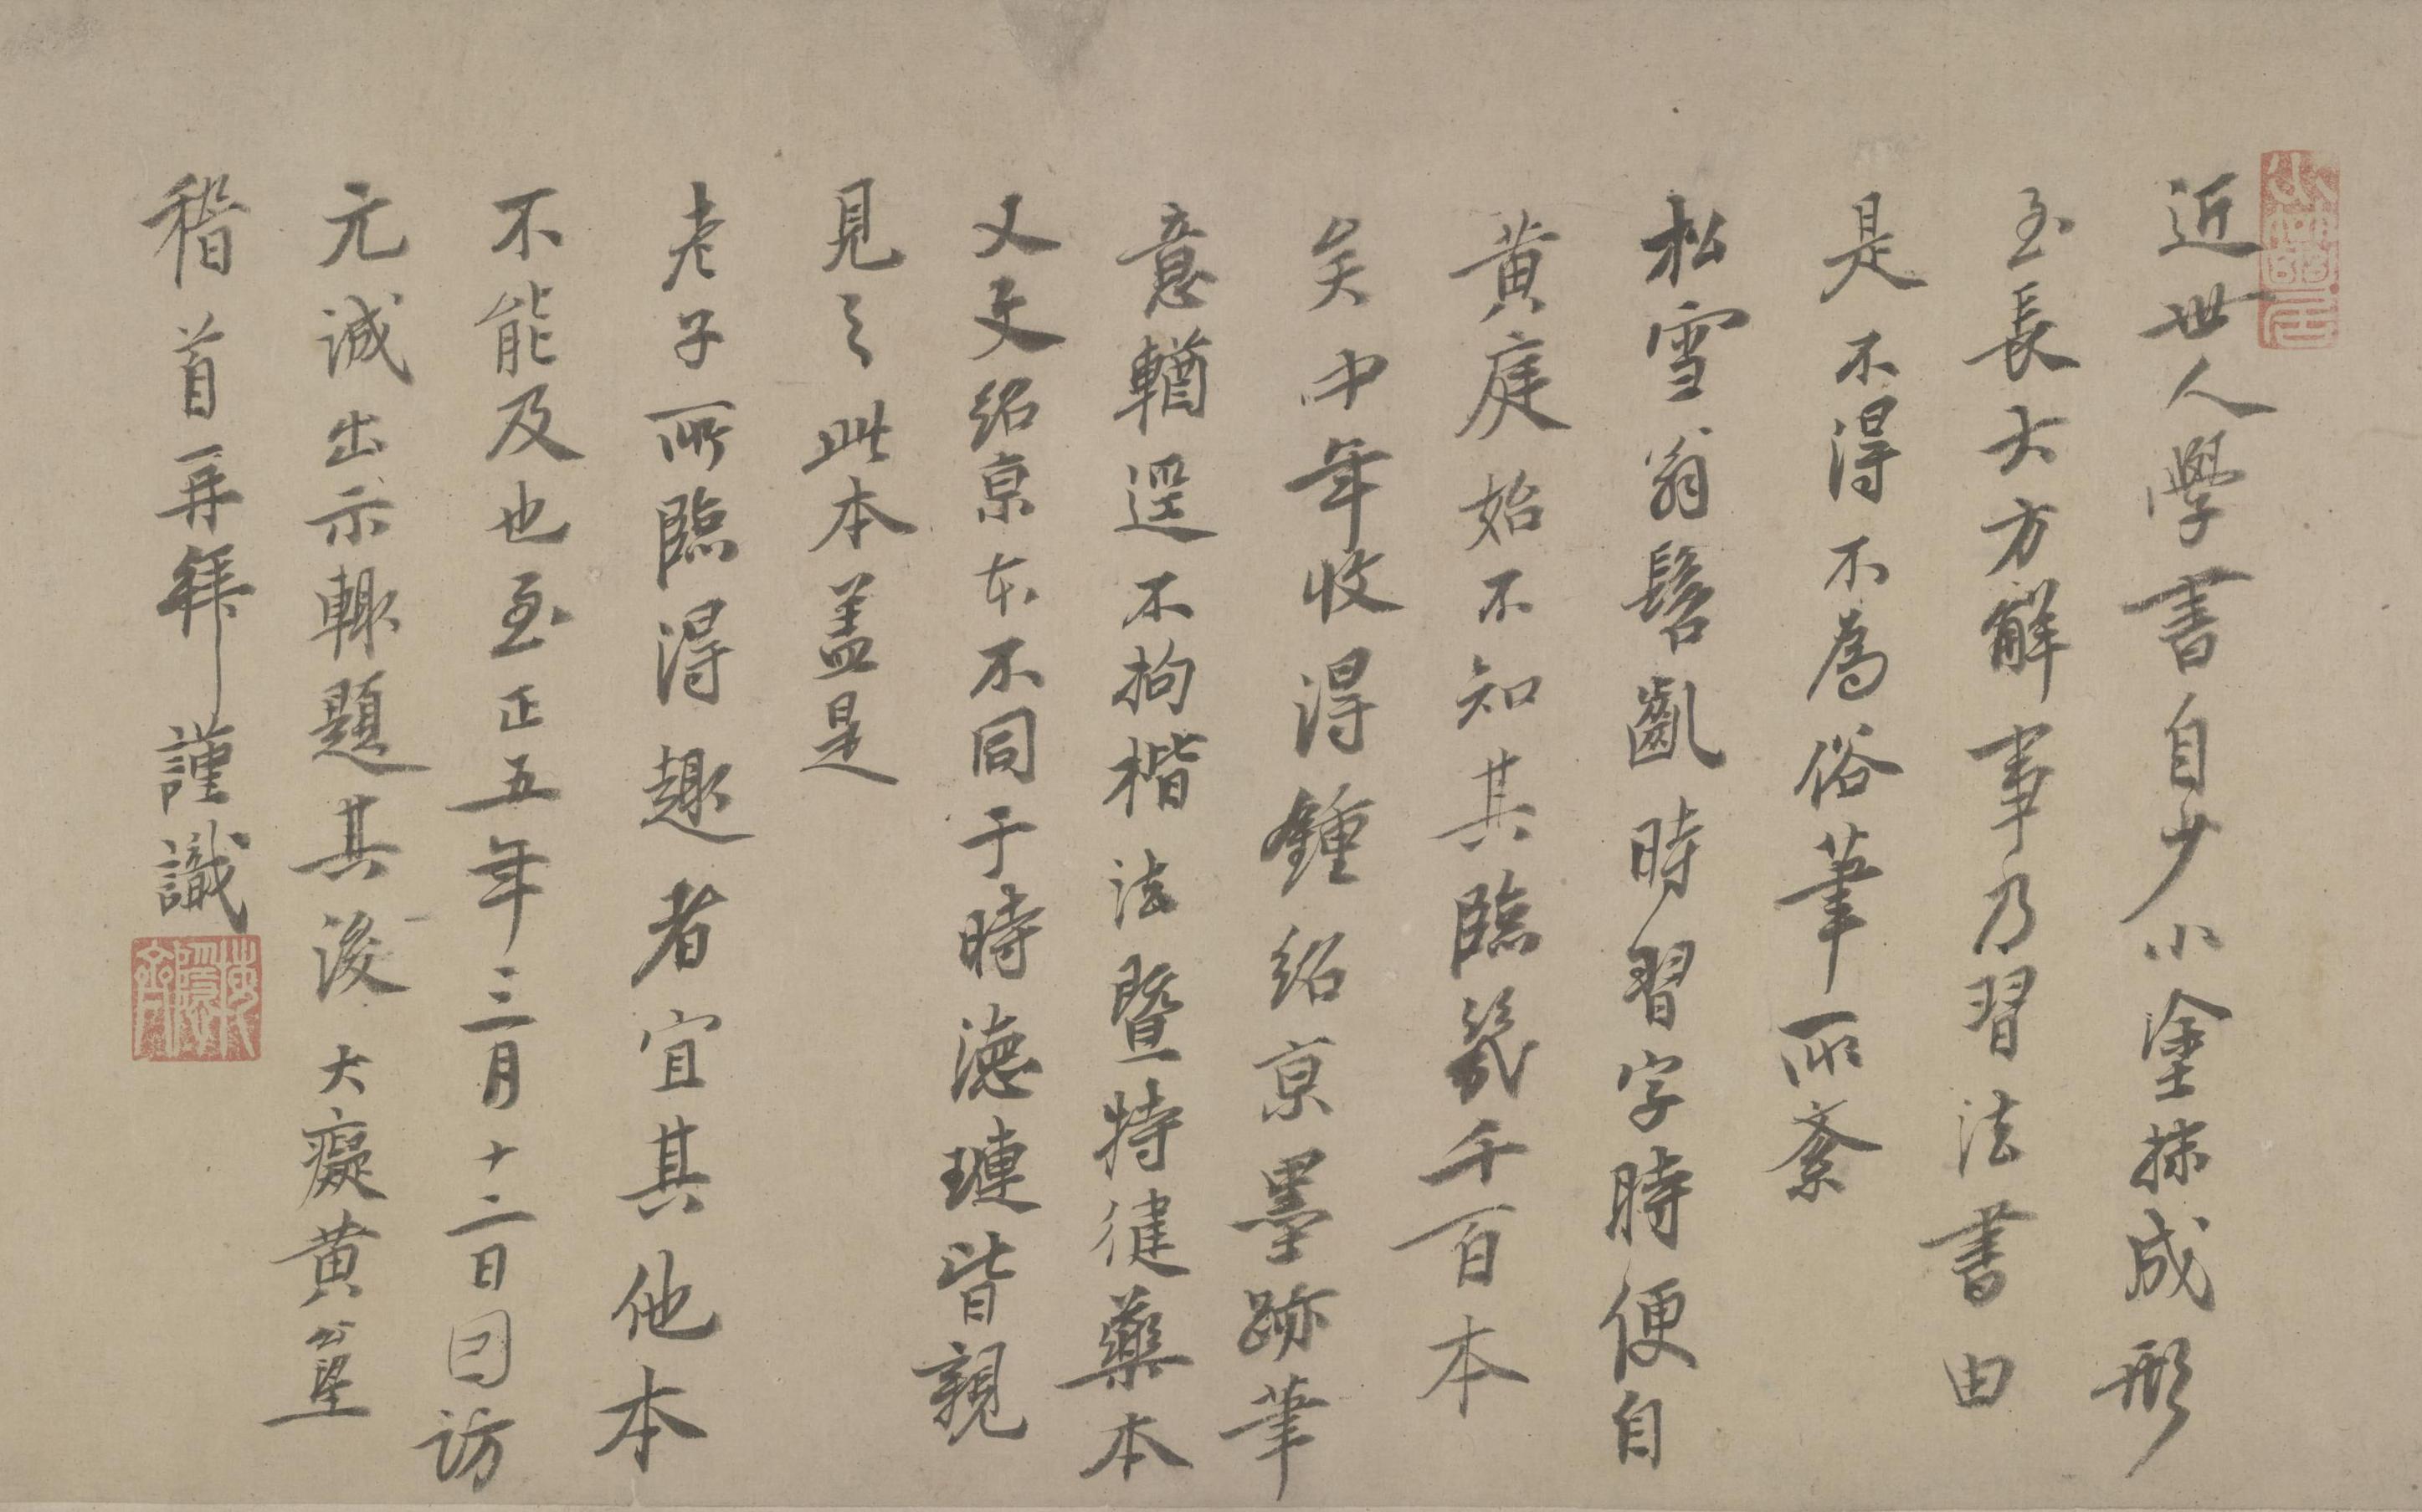 近世人學書自少小塗抹成形
至長大方解事乃習法書由
是不得不得不為俗筆所紊
松雪翁髫齓時習字時便自
黃庭始不知其臨幾千百本
矣中年收得鍾紹京墨跡筆
意輶逕不拘楷法暨特健藥本
又文紹京本不同于時德璉皆親
見之此本蓋是
老子所臨得趣者宜其他本
不能及也至正五年三月十二日因訪
元誠出示輒題其後大癡黃公望
稽首再拜謹識